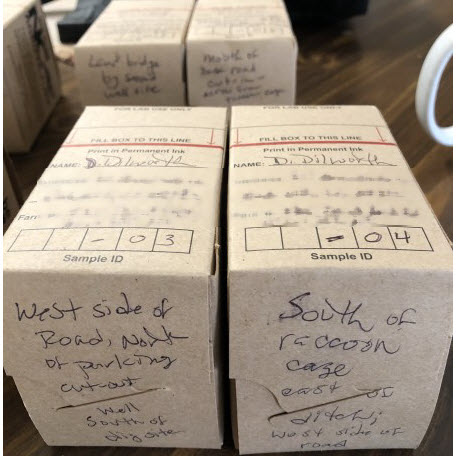 Land bridge
by seed
well site
Mouth of
road
FOR LAB USE ONLY
FILL BOX TO THIS LINE
Print in Permanent Ink
NAME: D. Dilworth
Farm
- 0 3
Sample ID
West side of
Road, North
of parking
cut-out
Well
South of
dig site
FOR LAB USE ONLY
FILL BOX TO THIS LINE
Print in Permanent Ink
NAME: D. Dilworth
- 0 4
Sample ID
South of
raccoon
cage
east of
ditch;
West side of
road